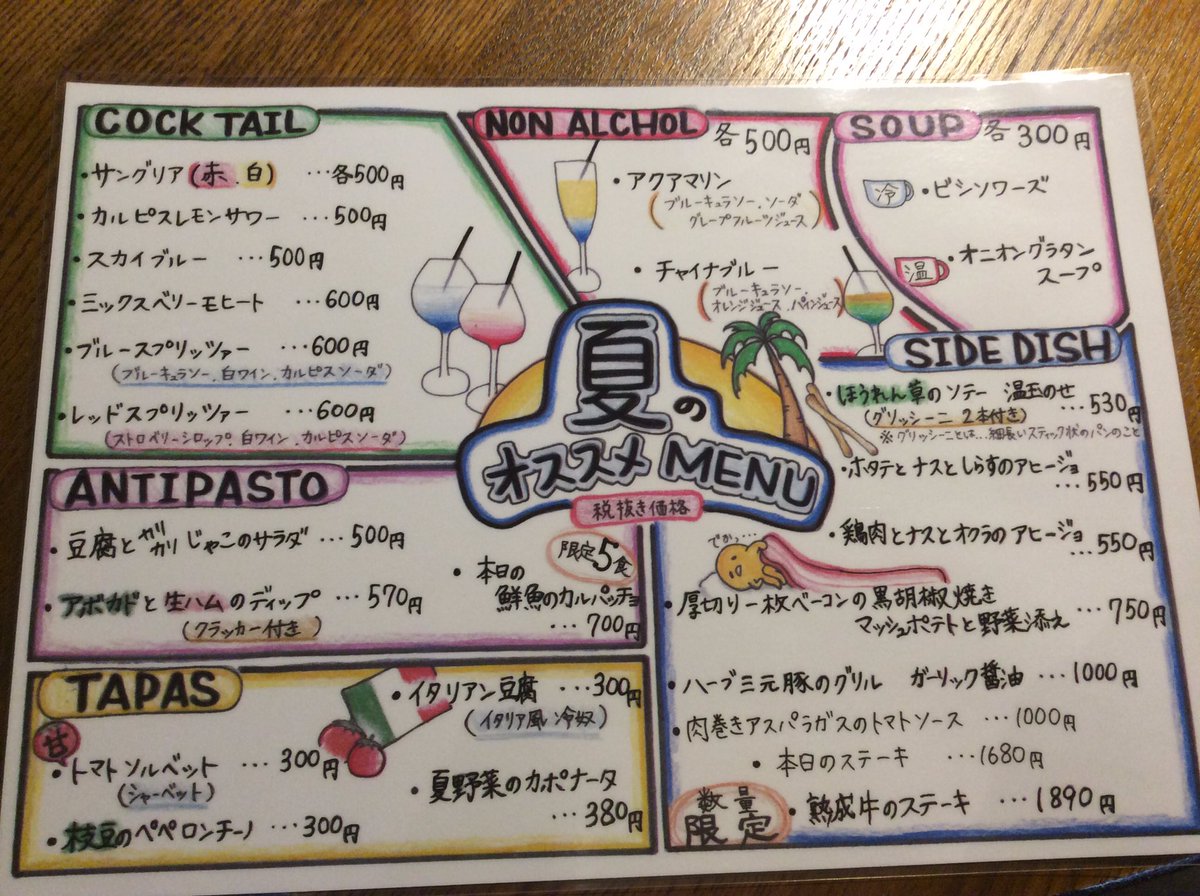 COCKTAIL
・サングリア(赤、白) …各500円
・カルピスレモンサワー …500円
・スカイブルー …500円
・ミックスベリーモヒート …600円
・ブルースプリッツァー …600円
(ブルーキュラソー、白ワイン、カルピスソーダ)
・レッドスプリッツァー …600円
(ストロベリーシロップ、白ワイン、カルピスソーダ)
NON ALCHOL 各500円
・アクアマリン
(ブルーキュラソー、ソーダ
グレープフルーツジュース)
・チャイナブルー
(ブルーキュラソー、
オレンジジュース、パインジュース)
SOUP 各300円
冷 ・ビシソワーズ
温 ・オニオングラタン
スープ
夏の
オススメMENU
税抜き価格
SIDE DISH
・ほうれん草のソテー 温玉のせ
(グリッシーニ 2本付き) …530円
※グリッシーニとは…細長いスティック状のパンのこと
・ホタテとナスとしらすのアヒージョ
…550円
・鶏肉とナスとオクラのアヒージョ
…550円
でかっ…
・厚切り一枚ベーコンの黒胡椒焼き
マッシュポテトと野菜添え …750円
・ハーブ三元豚のグリル ガーリック醤油 …1000円
・肉巻きアスパラガスのトマトソース …1000円
・本日のステーキ …1680円
数量
限定 ・熟成牛のステーキ …1890円
ANTIPASTO
・豆腐とカリカリじゃこのサラダ …500円
・アボカドと生ハムのディップ …570円
(クラッカー付き)
限定5食
・本日の
鮮魚のカルパッチョ
…700円
TAPAS
甘
・トマトソルベット …300円
(シャーベット)
・枝豆のペペロンチーノ …300円
・イタリアン豆腐 …300円
(イタリア風冷奴)
・夏野菜のカポナータ
…380円